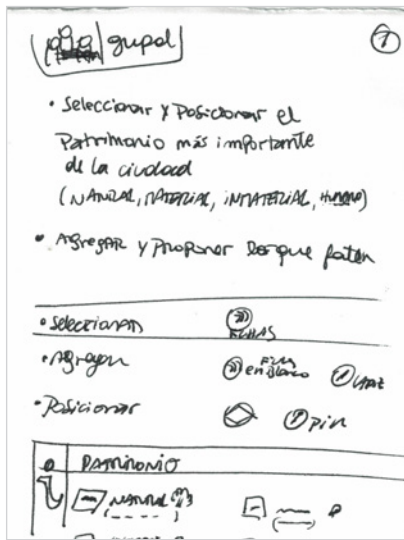 grupal
1
• Seleccionar y Posicionar el
Patrimonio más importante
de la ciudad
(NATURAL, MATERIAL, INMATERIAL, HUMANO)
• Agregar y proponer los que faltan
• Seleccionar
FICHAS
• Agregar
Fichas
en blanco
1
• Posicionar
1 pin
PATRIMONIO
NATURAL